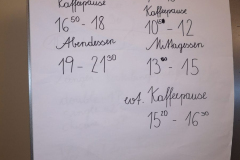 Kaffeepause
16⁵⁰ - 18
Abendessen
19 - 21³⁰
Kaffeepause
10⁵⁰ - 12
Mittagessen
13³⁰ - 15
evt. Kaffeepause
15²⁰ - 16³⁰